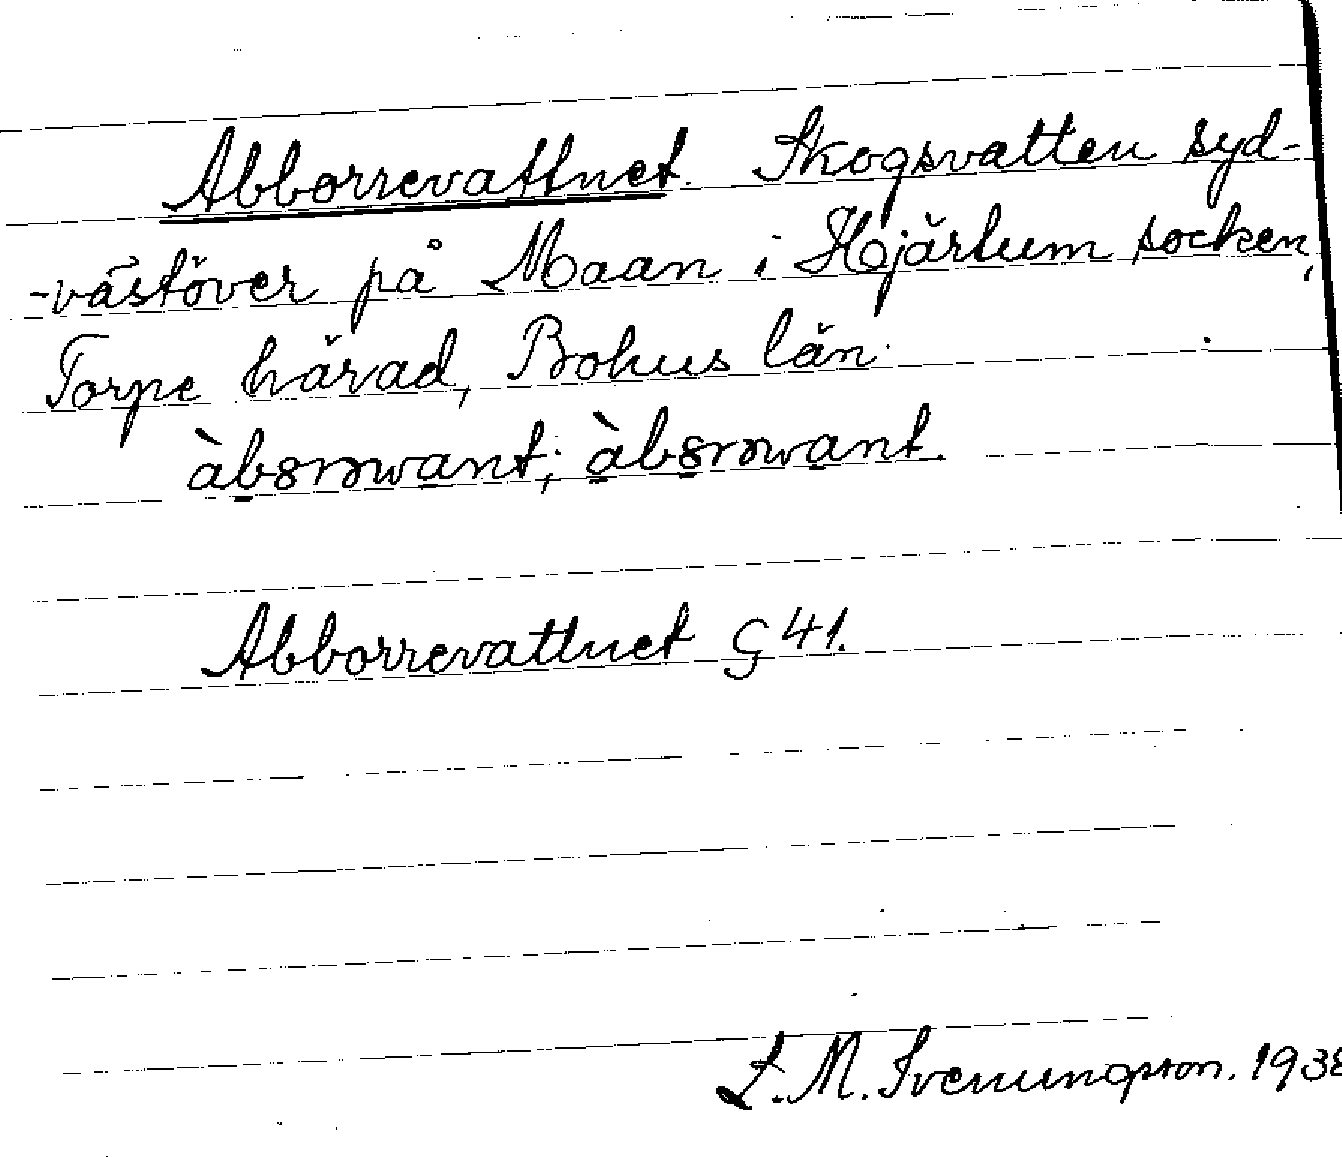 Abborrevattnet. Skogsvatten syd-
-västöver på Maan i Hjärtum socken,
Torpe härad, Bohus län.
Abborrevattnet G 41.
L. M. Svenungsson. 1938